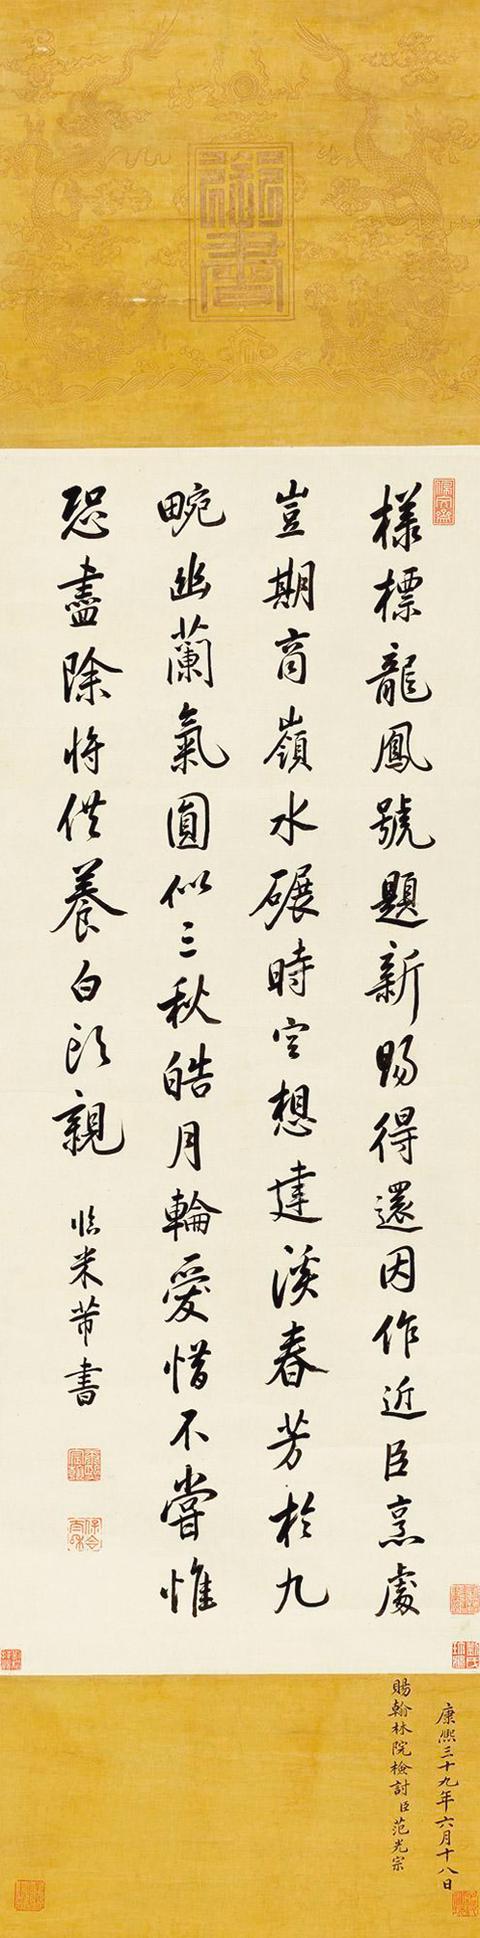 御書
樣標龍鳳號題新賜得還因作近臣烹處
豈期商嶺水碾時空想建溪春芳於九
畹幽蘭氣圓似三秋皓月輪愛惜不嘗惟
恐盡除將供養白頭親
臨米芾書
保合太和
康熙三十九年六月十八日
賜翰林院檢討臣范光宗